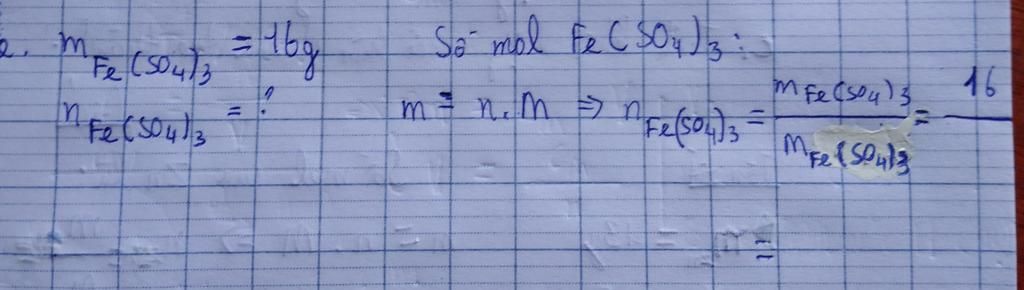 2. m Fe(SO4)3 = 16g Số mol Fe(SO4)3:
n Fe(SO4)3 = ? m = n.M => n Fe(SO4)3 = m Fe(SO4)3 / M Fe(SO4)3 = 16 /
=